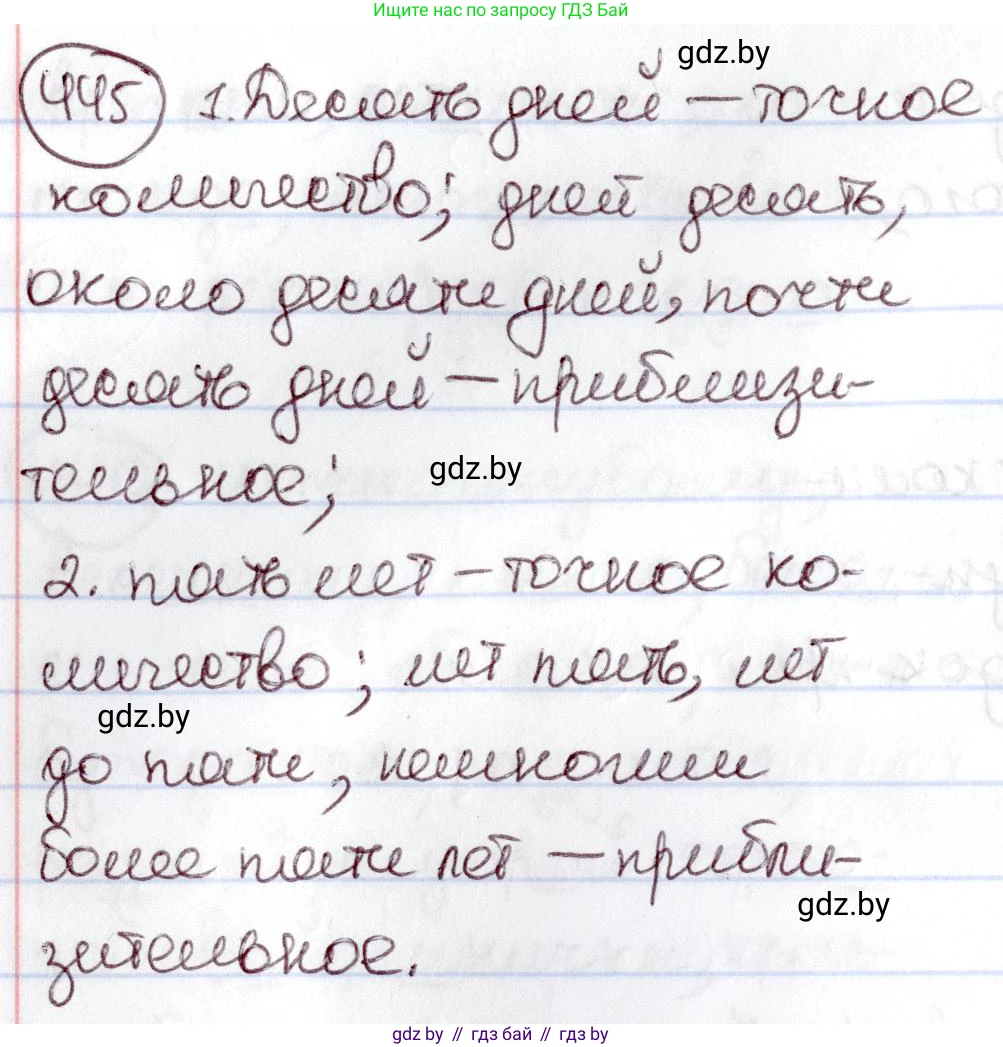 Ищите нас по запросу ГДЗ Бай
gdz.by
445 1. Десять дней – точное
количество; дней десять,
около десяти дней, почти
десять дней – приблизи-
тельное;
gdz.by
2. пять лет – точное ко-
личество; лет пять, лет
gdz.by
до пяти, немногим
более пяти лет – прибли-
gdz.by
зительное.
gdz.by // гдз бай // гдз by